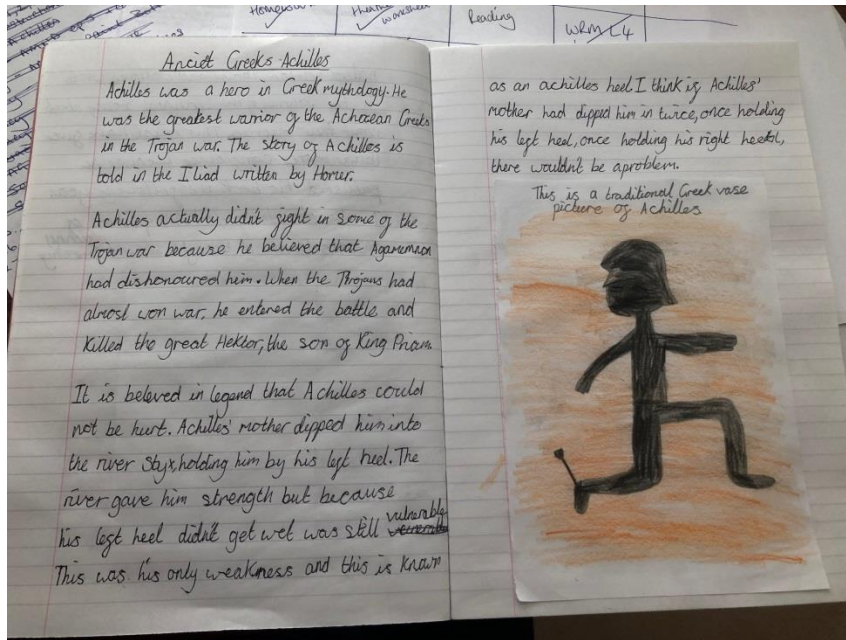 Homework
theatre
worksheet
Reading
WRM L4
Anciet Greeks-Achilles
Achilles was a hero in Greek mythology. He
was the greatest warrior of the Achaean Greeks
in the Trojan war. The story of Achilles is
told in the Iliad written by Homer.
Achilles actually didn't fight in some of the
Trojan war because he believed that Agamemnon
had dishonoured him. When the Trojans had
almost won war, he entered the battle and
killed the great Hektor, the son of King Priam.
It is beleved in legend that Achilles could
not be hurt. Achilles' mother dipped him into
the river Styx, holding him by his left heel. The
river gave him strength but because
his left heel didn't get wet was still vulnerable
This was his only weakness and this is known
as an achilles heel. I think if Achilles'
mother had dipped him in twice, once holding
his left heel, once holding his right heel,
there wouldn't be a problem.
This is a traditional Greek vase
picture of Achilles